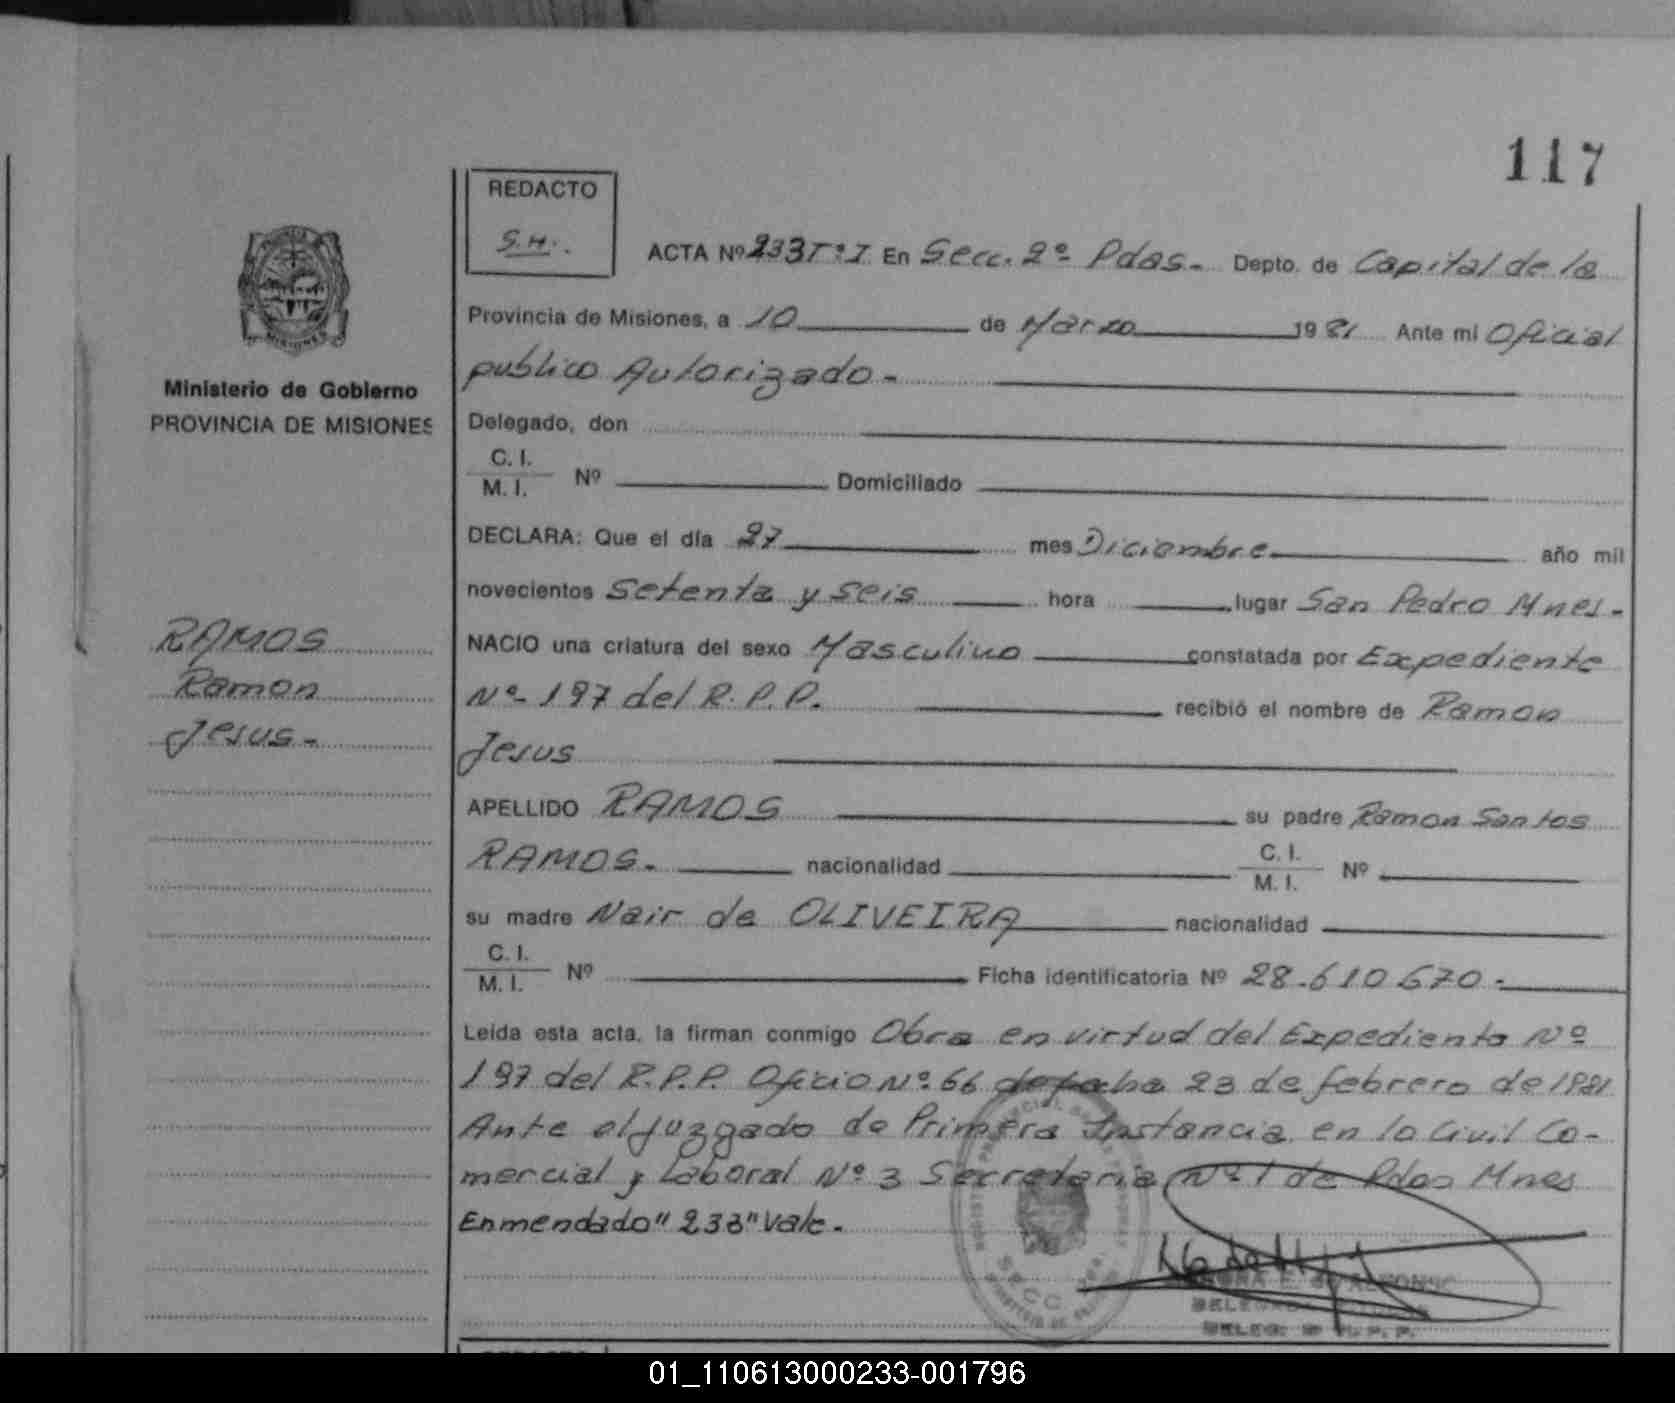 117
REDACTO
S.H.
ACTA Nº 233 Tº I En Secc. 2º Pdas. Depto. de Capital de la
Provincia de Misiones, a 10 de Marzo 1981 Ante mi Oficial
publico Autorizado
Ministerio de Gobierno
PROVINCIA DE MISIONES
Delegado, don
C. I.
M. I. Nº Domiciliado
DECLARA: Que el día 27 mes Diciembre año mil
novecientos Setenta y seis hora lugar San Pedro Mnes.
NACIO una criatura del sexo Masculino constatada por Expediente
Nº 197 del R.P.P. recibió el nombre de Ramon
Jesus
RAMOS
Ramon
Jesus
APELLIDO RAMOS su padre Ramon Santos
RAMOS. nacionalidad C. I. M. I. Nº
su madre Nair de OLIVEIRA nacionalidad
C. I.
M. I. Nº Ficha identificatoria Nº 28.610.670
Leída esta acta, la firman conmigo Obra en virtud del Expediente Nº
197 del R.P.P. Oficio Nº 66 de fecha 23 de febrero de 1981
Ante el juzgado de Primera Instancia en lo Civil Co-
mercial y Laboral Nº 3 Secretaria Nº 1 de Pdas Mnes
Enmendado "233" Vale.
01_110613000233-001796